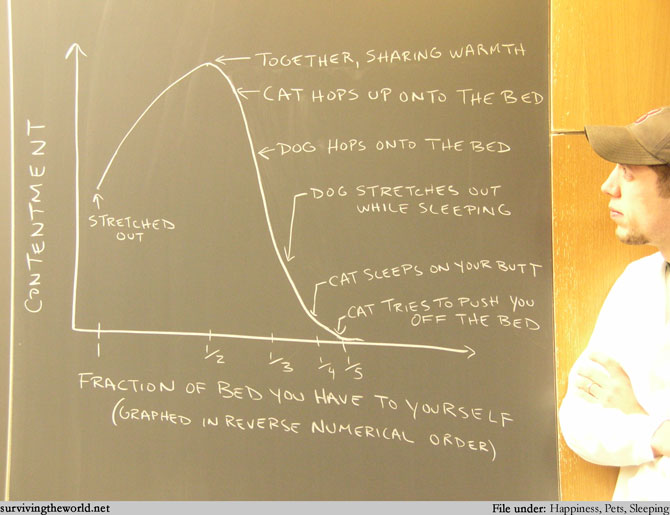 TOGETHER, SHARING WARMTH
CAT HOPS UP ONTO THE BED
DOG HOPS ONTO THE BED
DOG STRETCHES OUT
WHILE SLEEPING
STRETCHED
OUT
CAT SLEEPS ON YOUR BUTT
CAT TRIES TO PUSH YOU
OFF THE BED
CONTENTMENT
1 1/2 1/3 1/4 1/5
FRACTION OF BED YOU HAVE TO YOURSELF
(GRAPHED IN REVERSE NUMERICAL ORDER)
survivingtheworld.net
File under: Happiness, Pets, Sleeping